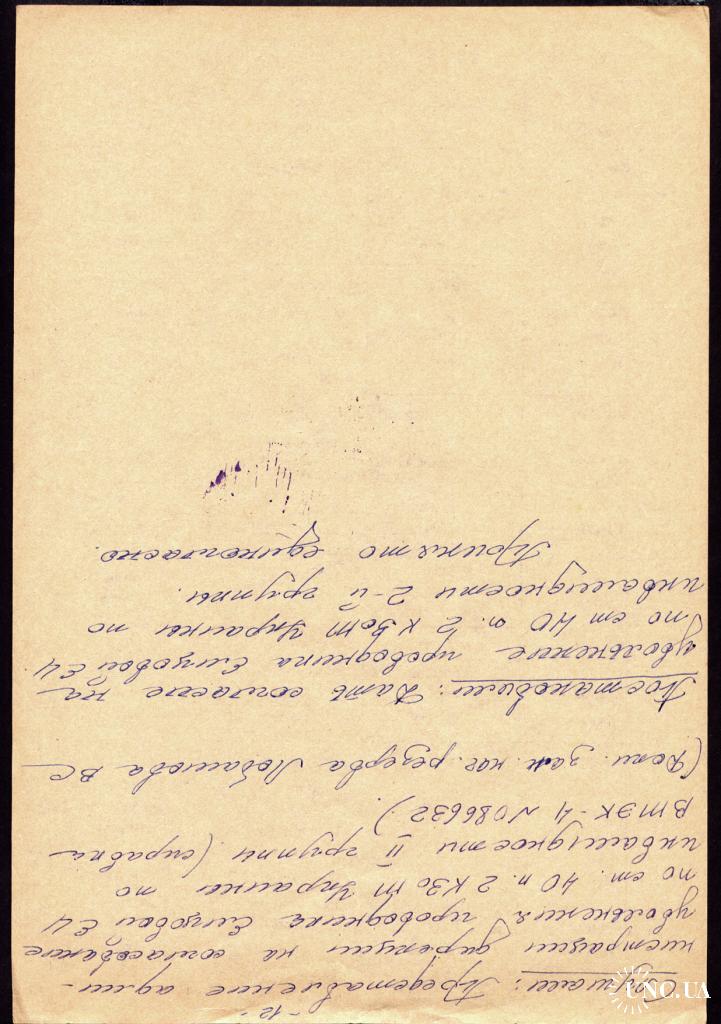 - 12 -
Слушали: Представление адми-
нистрации дирекции на согласование
увольнения проводника Елизовой Е И
по ст. 40 п. 2 КЗоТ Украины по
инвалидности II группы (справка
ВТЭК-4 №086632.)
(Докл. зам. нач. резерва Лобанова ВС
Постановили: Дать согласие на
увольнение проводника Елизовой Е И
по ст 40 п. 2 КЗоТ Украины по
инвалидности 2-й группы.
Принято единогласно.
UNC.UA